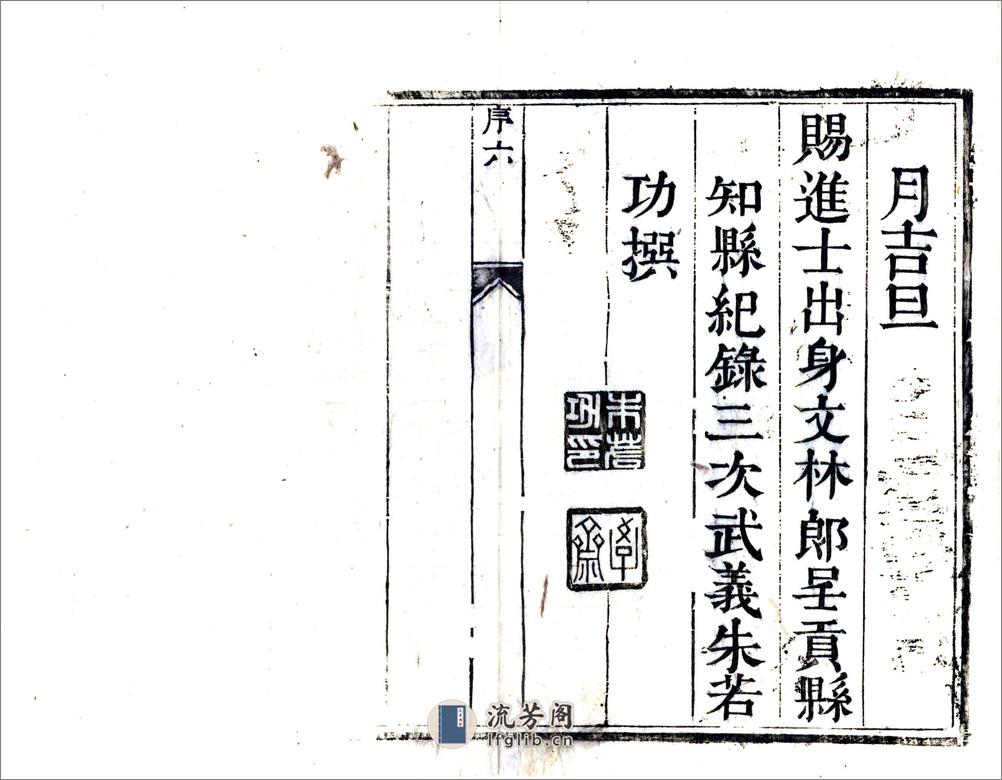 月吉旦
賜進士出身文林郎呈貢縣
知縣紀錄三次武義朱若
功撰
朱若功印
學齋
序六
流芳阁
lfglib.cn